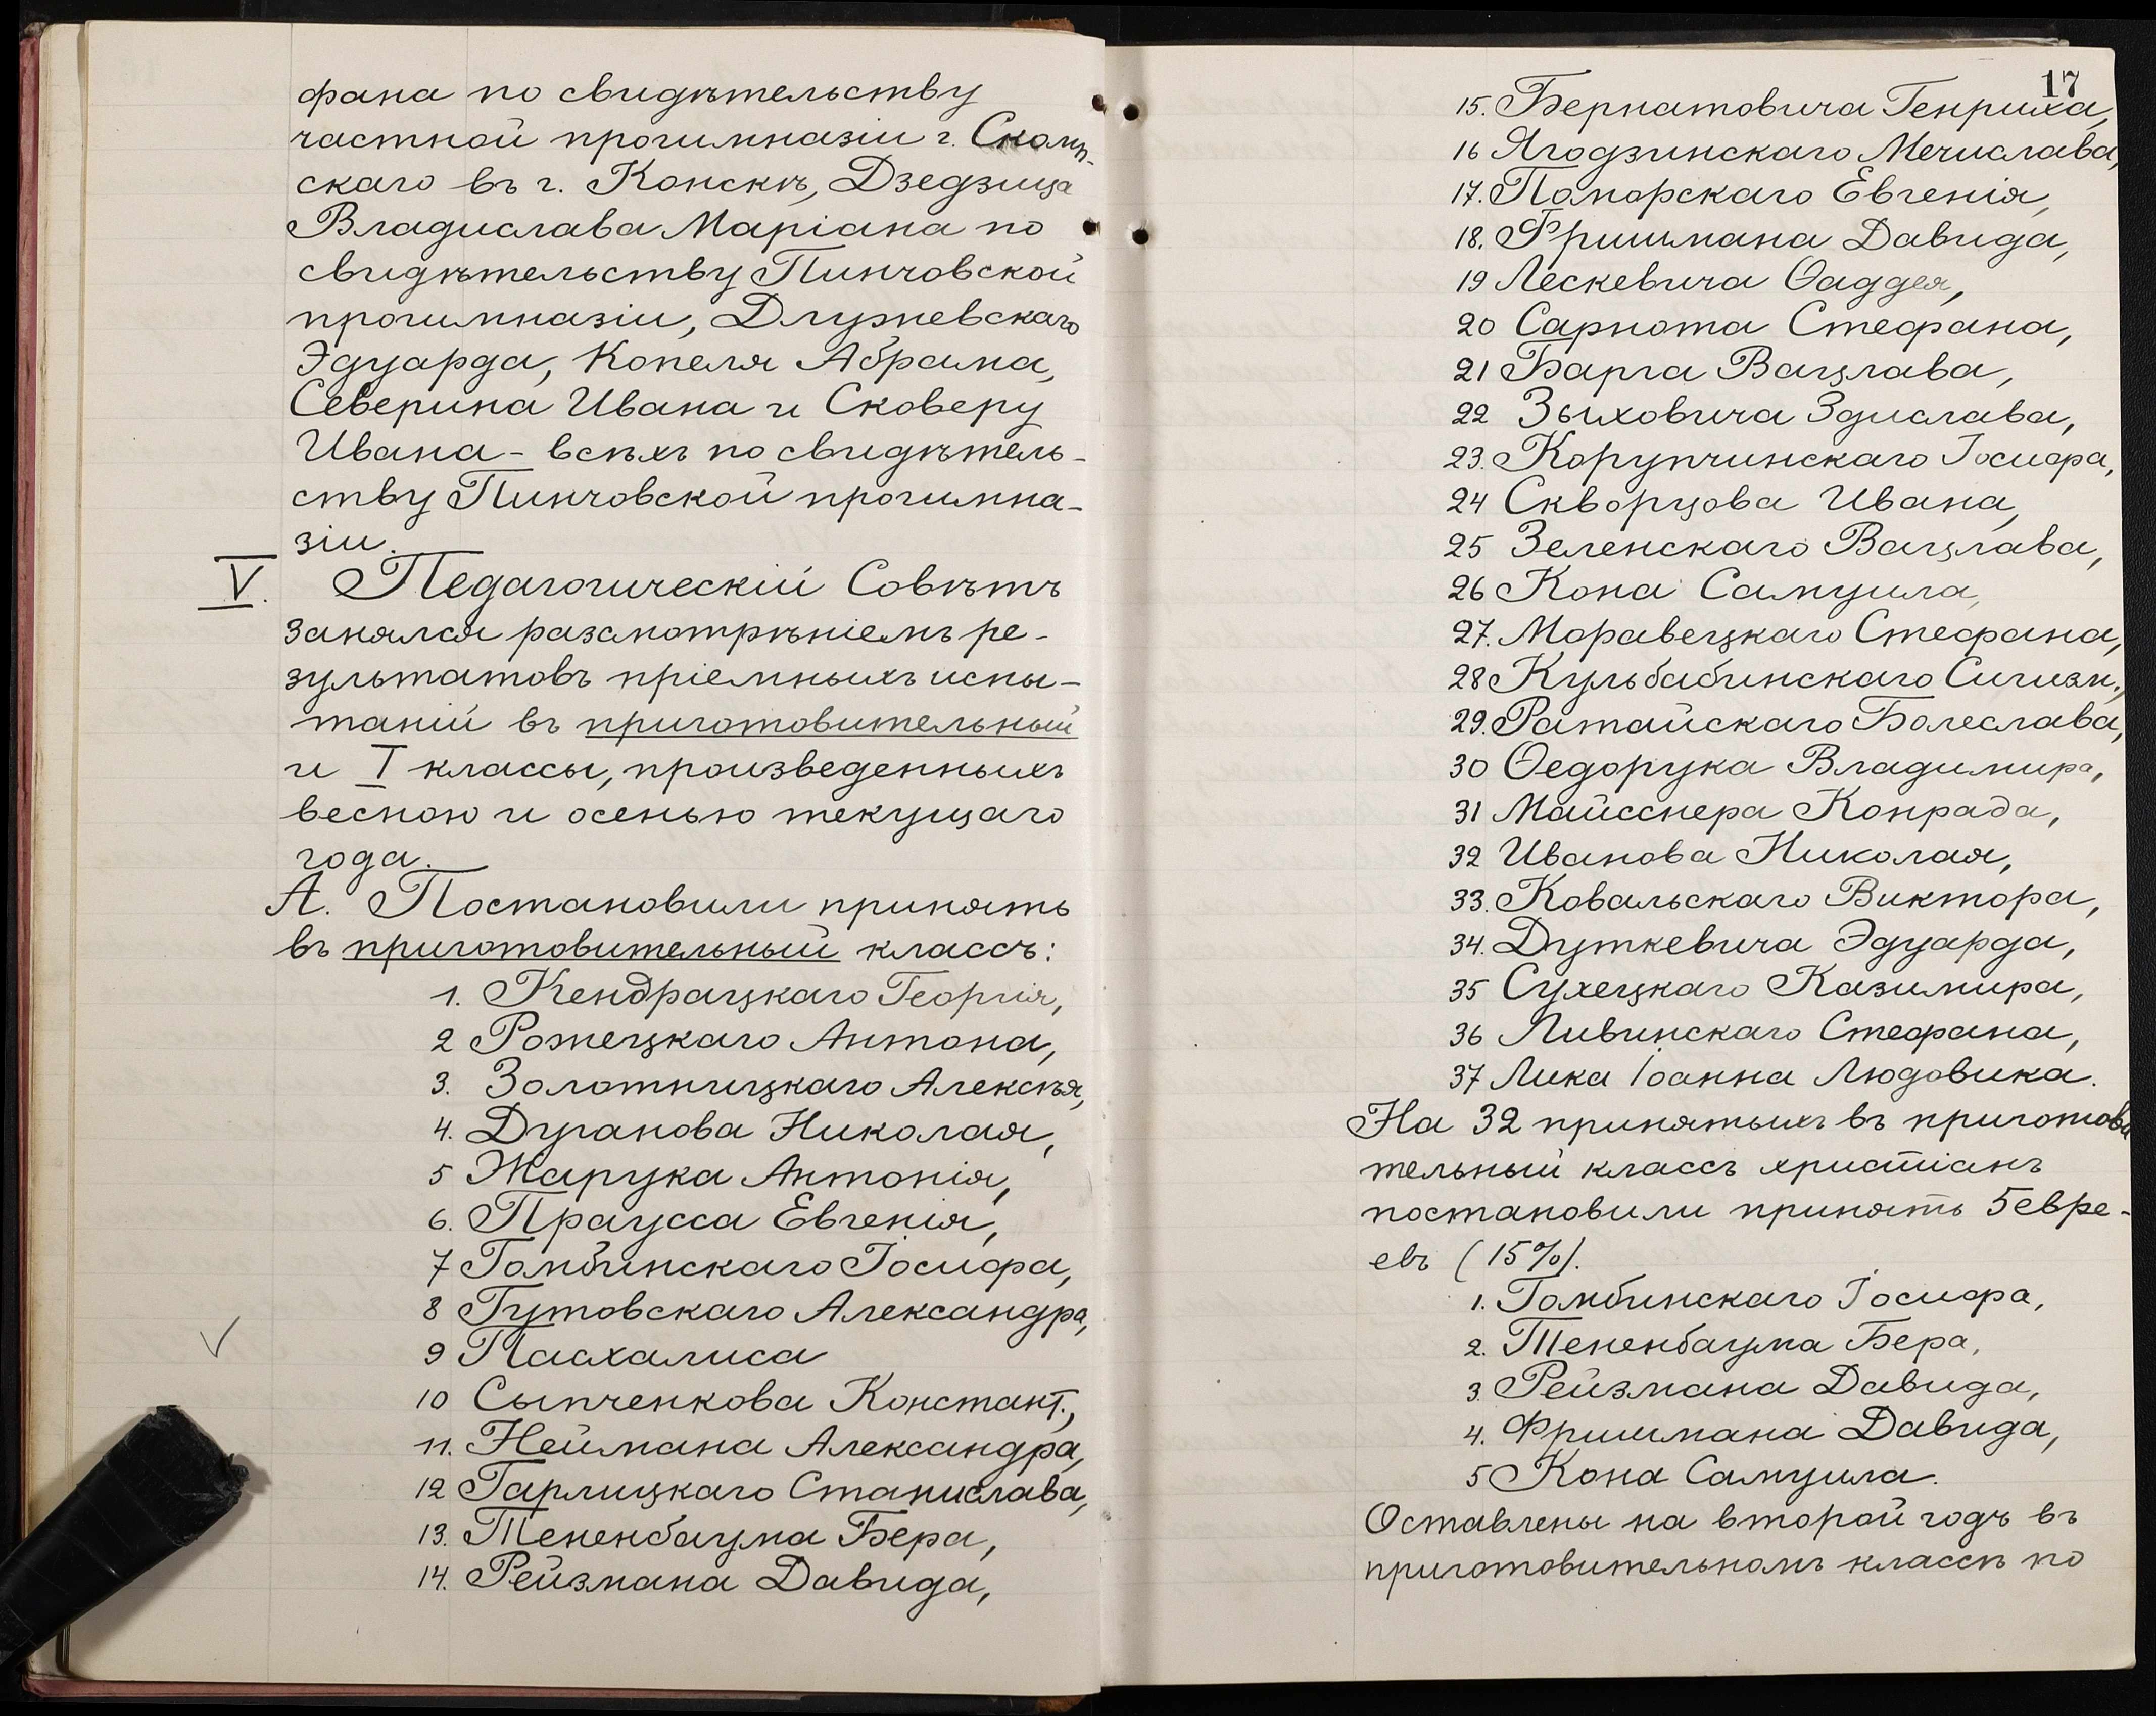 фана по свидѣтельству
частной прогимназіи г. Сколим-
скаго въ г. Конскѣ, Дзедзица
Владислава Маріана по
свидѣтельству Пинчовской
прогимназіи, Длужневскаго
Эдуарда, Копеля Абрама,
Северина Ивана и Сковеру
Ивана - всѣхъ по свидѣтель-
ству Пинчовской прогимна-
зіи.
V. Педагогическій Совѣтъ
занялся разсмотрѣніемъ ре-
зультатовъ пріемныхъ испы-
таній въ приготовительный
и I классы, произведенныхъ
весною и осенью текущаго
года.
А. Постановили принять
въ приготовительный классъ:
1. Кендрацкаго Георгія,
2 Рожецкаго Антона,
3. Золотницкаго Алексѣя,
4. Дуганова Николая,
5 Жарука Антонія,
6. Праусса Евгенія,
7 Гомбинскаго Іосифа,
8 Гутовскаго Александра,
9 Пасхалиса
10 Сыпченкова Констант.,
11. Неймана Александра,
12 Гарлицкаго Станислава,
13. Тененбаума Бера,
14. Рейзмана Давида,
17
15. Бернатовича Генриха,
16 Ягодзинскаго Мечислава,
17. Поморскаго Евгенія,
18. Фришмана Давида,
19 Лескевича Ѳаддея,
20 Сарнота Стефана,
21 Барча Вацлава,
22 Зыховича Здислава,
23. Корупчинскаго Іосифа,
24 Скворцова Ивана,
25 Зеленскаго Вацлава,
26 Кона Самуила,
27. Моравецкаго Стефана,
28 Кульбабинскаго Сигизм.,
29. Ратайскаго Болеслава,
30 Ѳедорука Владимира,
31 Майсснера Конрада,
32 Иванова Николая,
33. Ковальскаго Виктора,
34. Дуткевича Эдуарда,
35 Сухецкаго Казимира,
36 Ливинскаго Стефана,
37 Лика Іоанна Людовика.
На 32 принятыхъ въ приготови
тельный классъ христіанъ
постановили принять 5 евре-
евъ (15%).
1. Гомбинскаго Іосифа,
2. Тененбаума Бера,
3. Рейзмана Давида,
4. Фришмана Давида,
5 Кона Самуила.
Оставлены на второй годъ въ
приготовительномъ классѣ по